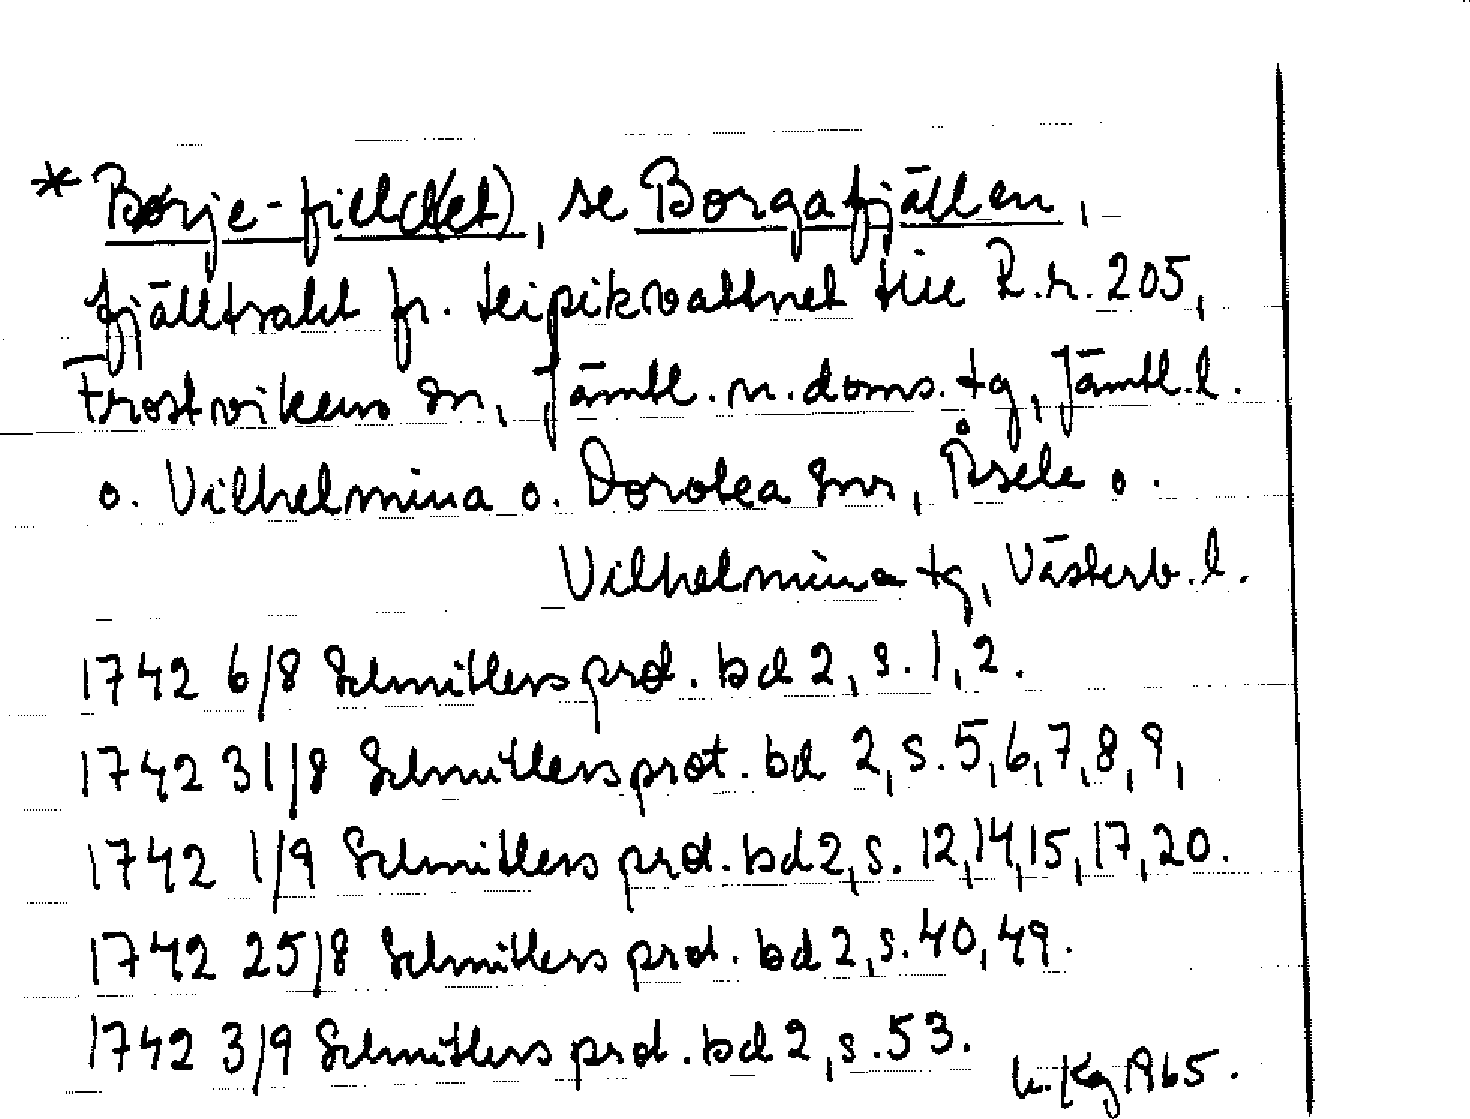 * Børje-field(et), se Borgafjällen,
fjälltrakt fr. Leipikvattnet till R.r. 205,
Frostvikens sn, Jämtl. n. doms. tg, Jämtl. l.
o. Vilhelmina o. Dorotea snr, Åsele o.
Vilhelmina tg, Västerb. l.
1742 6/8 Schnitlers prot. bd 2, s. 1, 2.
1742 31/8 Schnitlers prot. bd 2, s. 5, 6, 7, 8, 9,
1742 1/9 Schnitlers prot. bd 2, s. 12, 14, 15, 17, 20.
1742 25/8 Schnitlers prot. bd 2, s. 40, 49.
1742 3/9 Schnitlers prot. bd 2, s. 53.
1965.